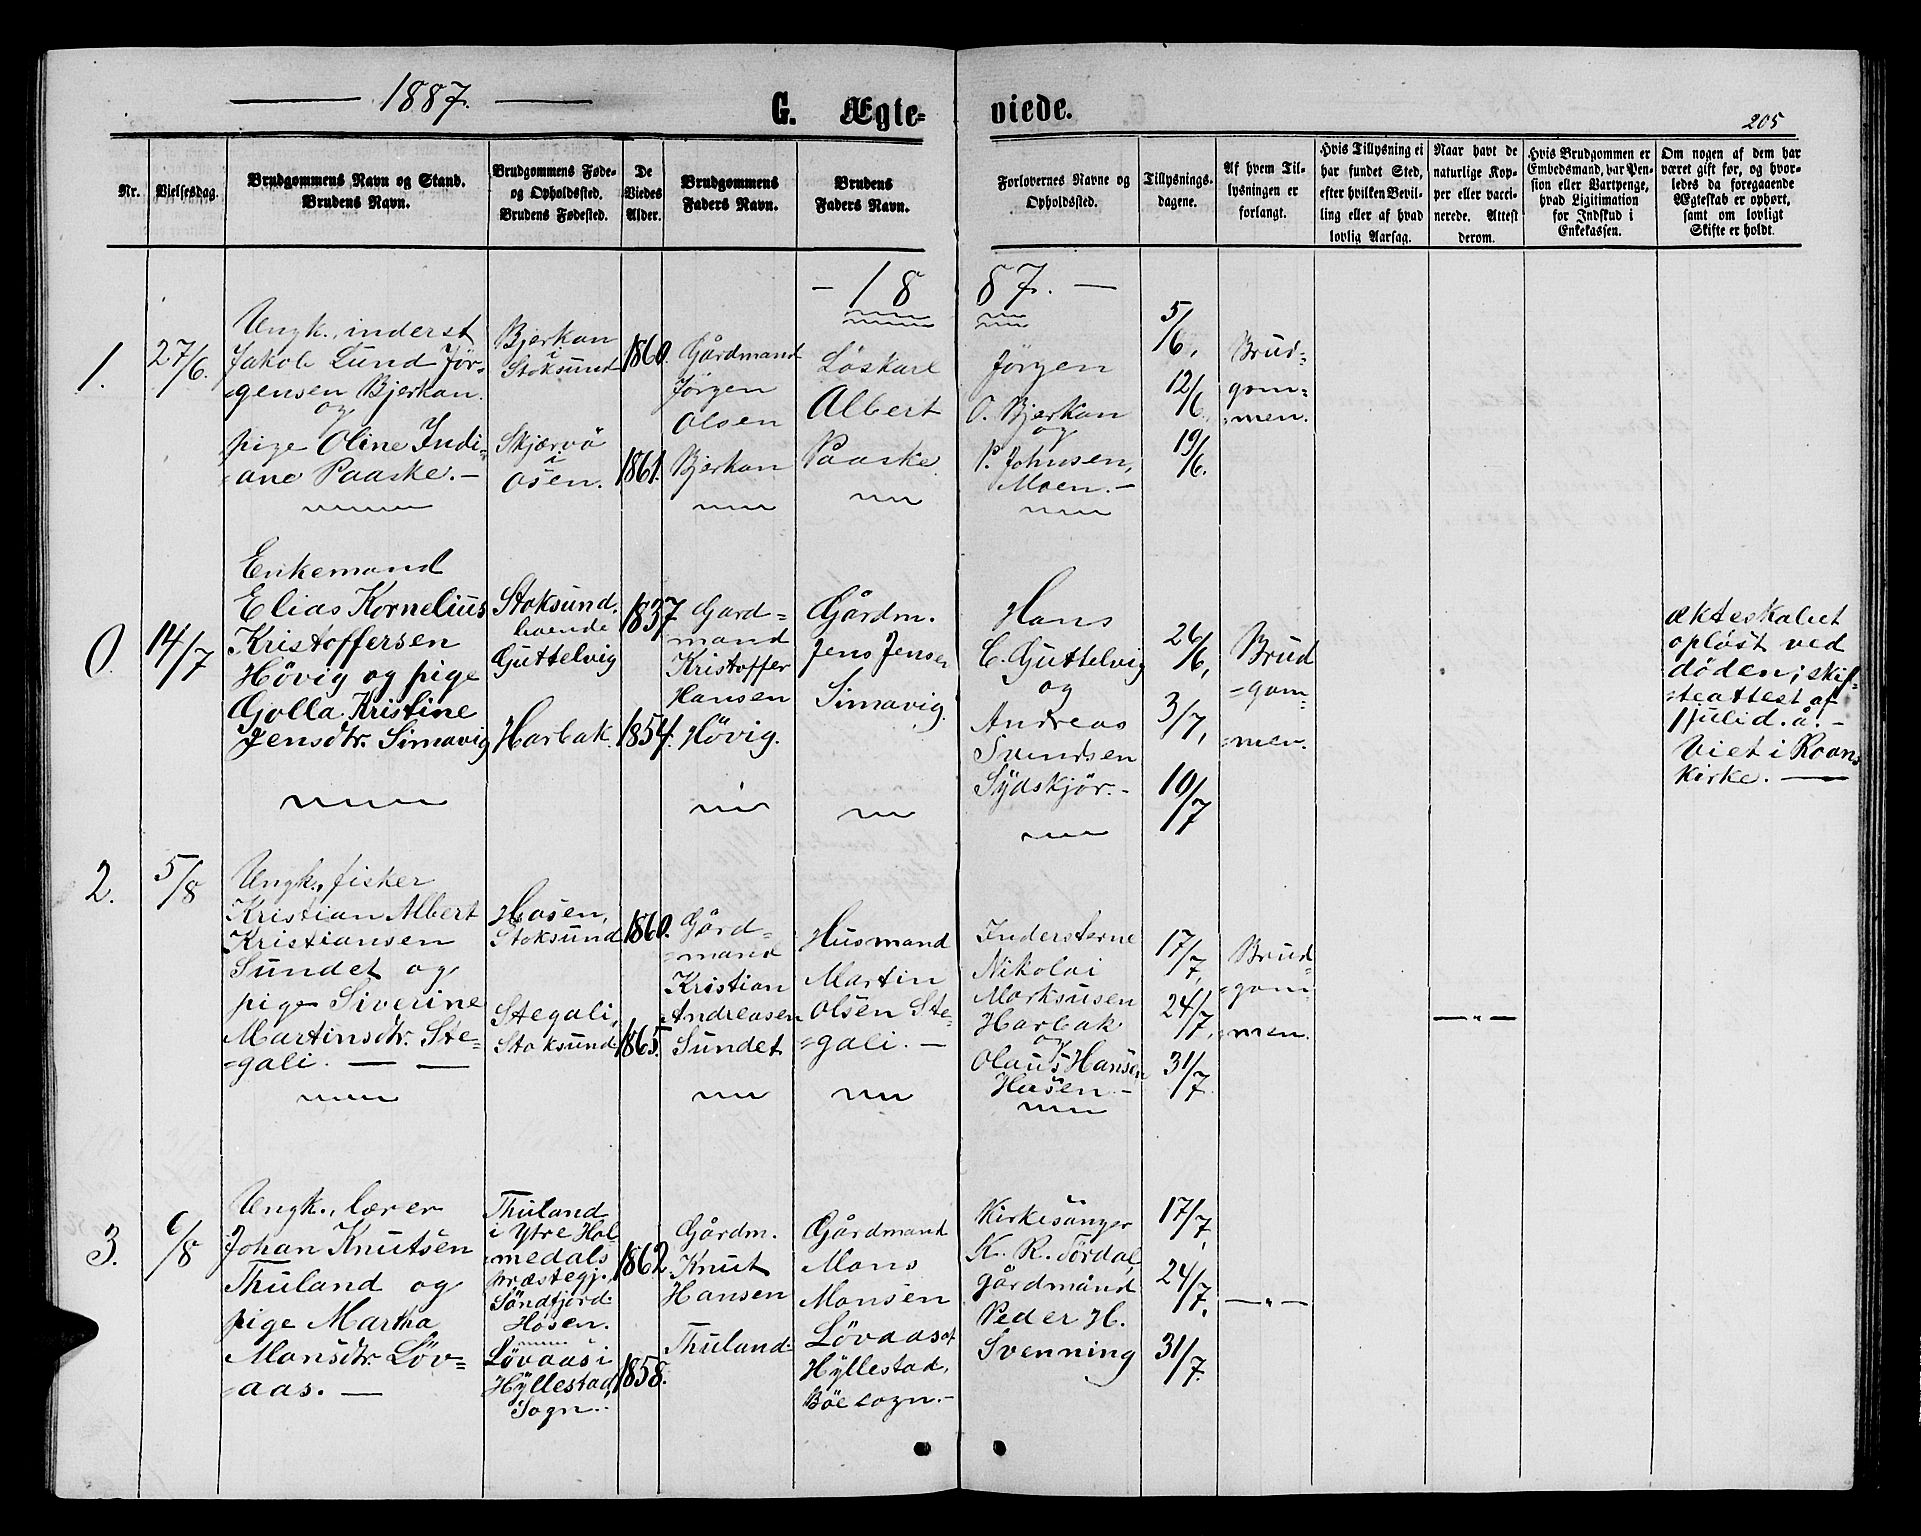 1887.
G. Ægte-
viede.
205
Nr.
Vielsesdag.
Brudgommens Navn og Stand.
Brudens Navn.
Brudgommens Føde-
og Opholdssted.
Brudens Fødested.
De
Viedes
Alder.
Brudgommens
Faders Navn.
Brudens
Faders Navn.
Forlovernes Navne og
Opholdssted.
Tillysnings-
dagene.
Af hvem Til-
lysningen er
forlangt.
Hvis Tillysning ei
har fundet Sted,
efter hvilken Bevil-
ling eller af hvad
lovlig Aarsag.
Naar havt de
naturlige Kop-
per eller vacci-
nerede. Attest
derom.
Hvis Brudgommen er
Embedsmand, var Pen-
sion eller Vartpenge,
hvad Ligitimation
for Indskud i
Enkekassen.
Om nogen af dem har
været gift før, og hvor-
ledes da foregaaende
Ægteskab er ophørt,
samt om lovligt
Skifte er holdt.
- 18 87. -
1.
27/6.
Ungk., inderst
Jakob Lund Jör-
gensen Bjerkan.
og
pige Oline Indi-
ane Paaske. -
Bjerkan
i
Stoksund
Skjærvö
i
Osen.
1860.
1861.
Gårdmand
Jörgen
Olsen
Bjerkan
Löskarl
Albert
Paaske.
Jörgen
O. Bjerkan
og
P. Johnsen,
Moen. -
5/6,
12/6
19/6.
Brud-
gom-
men.
0.
14/7
Enkemand
Elias Kornelius
Kristoffersen
Hövig og pige
Gjolla Kristine
Jensdtr. Simavig
Stoksund,
boende
Guttelvig
Harbak.
1837
1854.
Gard-
mand
Kristoffer
Hansen
Hövig.
Gårdm.
Jens Jensen
Simavig.
Hans
C. Guttelvig
og
Andreas
Svendsen
Sydskjör. -
26/6,
3/7,
10/7
Brud
gom-
men.
ækteskabet
oplöst ved
döden; skif-
teattest af
1 juli d. å. -
Viet i Roans
kirke. -
2.
5/8
Ungk., fisker
Kristian Albert
Kristiansen
Sundet og
pige Siverine
Martinsdtr. Ste-
gali. -
Hosen,
Stoksund
Stegali,
Stoksund
1860.
1865.
Gård-
mand
Kristian
Andreasen
Sundet
Husmand
Martin
Olsen Ste-
gali. -
Indersterne
Nikolai
Marksusen
Harbak
og
Olaus Hansen
Hosen. -
17/7,
24/7,
31/7
Brud-
gom
men.
-"-
3.
6/8
Ungk., lærer
Johan Knutsen
Thuland og
pige Martha
Monsdtr. Löv-
aas. -
Thuland
i Ytre Hol
medals
præstegj.
Söndfjord
Hosen.
Lövaas i
Hyllestad,
Sogn.
1862
1858.
Gårdm.
Knut
Hansen
Thuland
Gårdmand
Mons
Monsen
Lövaas af
Hyllestad,
Böe sogn. -
Kirkesanger
K. R. Tördal,
gårdmand
Peder H.
Svenning
17/7,
24/7,
31/7.
-"-